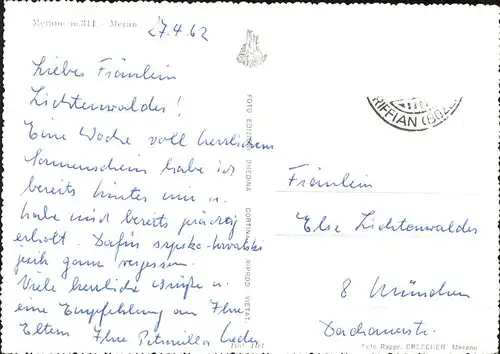 Merano m.311 - Meran
27.4.62
Liebes Fräulein
Lichtenwalder!
Eine Woche voll herrlichem
Sonnenschein habe ich
bereits hinter mir u.
habe mich bereits prächtig
erholt. Dafür srpsko-hrvatski
jezik ganz vergessen.
Viele herzliche Grüße u.
eine Empfehlung an Ihre
Eltern Ihre Petronilla
FOTO EDIZ. GHEDINA CORTINA RIPROD. VIETATA
RIFFIAN (BOZ
Fräulein
Else Lichtenwalder
8 München
Dachauerstr.
Foto Rappr. DRESCHER Merano